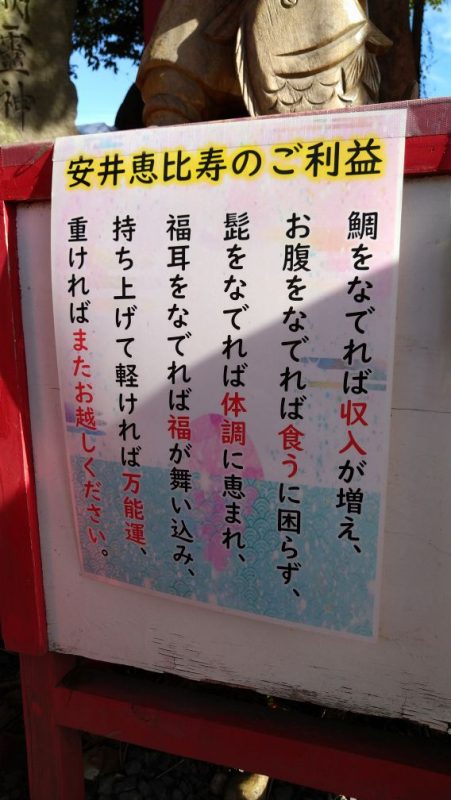 安井恵比寿のご利益
鯛をなでれば収入が増え、
お腹をなでれば食うに困らず、
髭をなでれば体調に恵まれ、
福耳をなでれば福が舞い込み、
持ち上げて軽ければ万能運、
重ければまたお越しください。
霊神